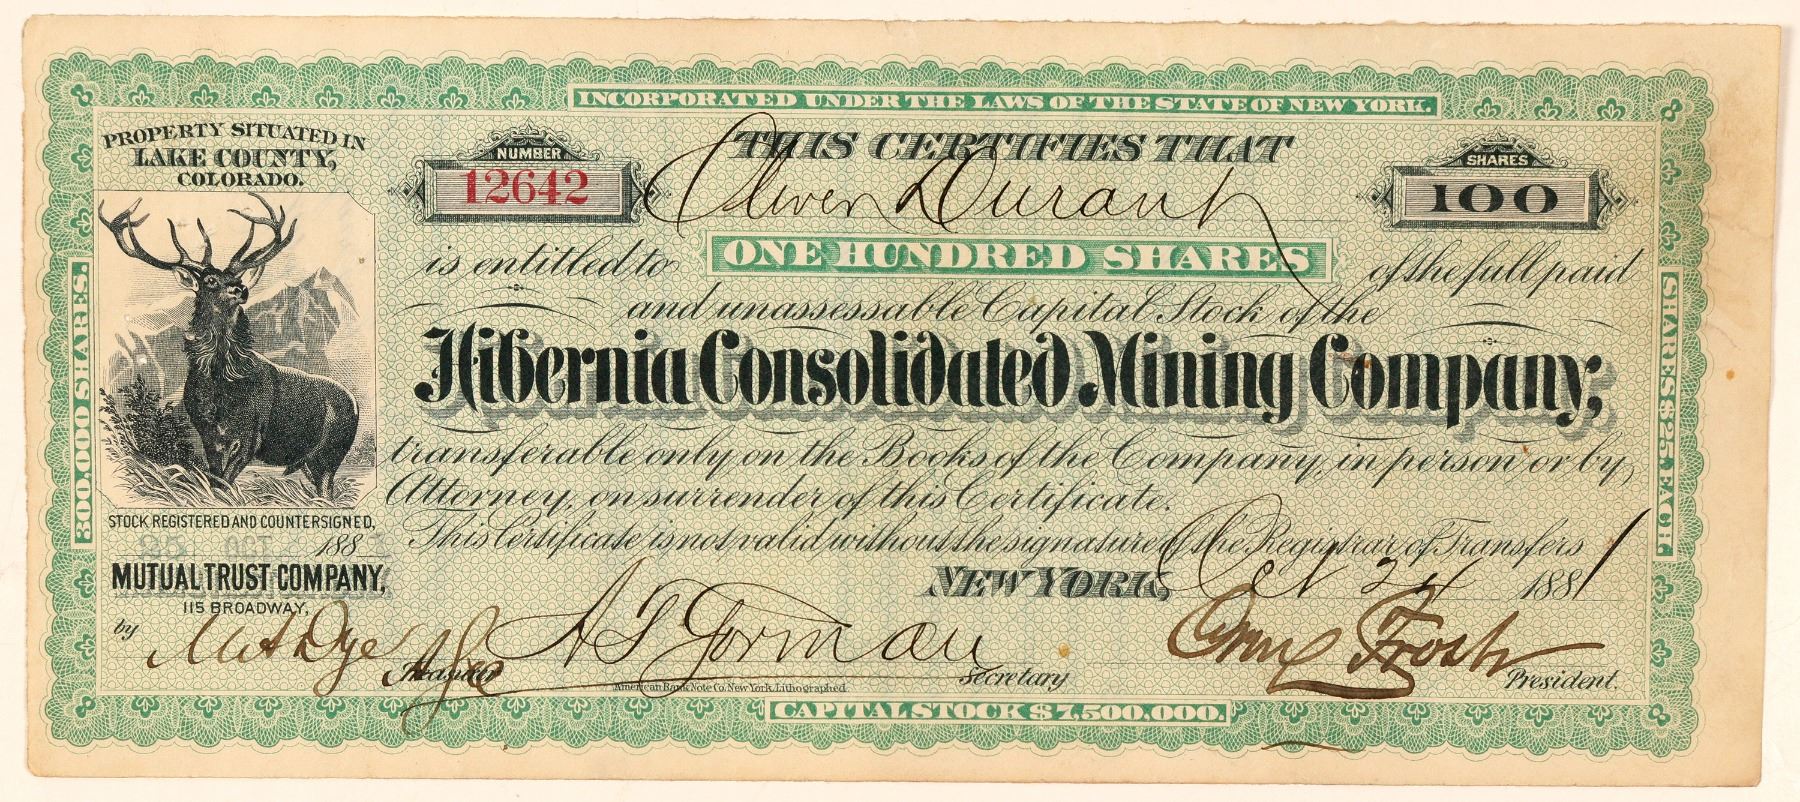 INCORPORATED UNDER THE LAWS OF THE STATE OF NEW YORK.
PROPERTY SITUATED IN
LAKE COUNTY,
COLORADO.
NUMBER
12642
THIS CERTIFIES THAT
SHARES
100
Oliver Durant
is entitled to ONE HUNDRED SHARES of the full paid
and unassessable Capital Stock of the
Hibernia Consolidated Mining Company,
transferable only on the Books of the Company, in person or by
Attorney, on surrender of this Certificate.
This Certificate is not valid without the signature of the Registrar of Transfers
NEW YORK, Oct 24 1881
300,000 SHARES.
SHARES $25 EACH.
STOCK REGISTERED AND COUNTERSIGNED,
OCT 188
MUTUAL TRUST COMPANY,
115 BROADWAY,
by
Dye
A S Gorman
Secretary
Frost
President.
American Bank Note Co. New York. Lithographed.
CAPITAL STOCK $7,500,000.